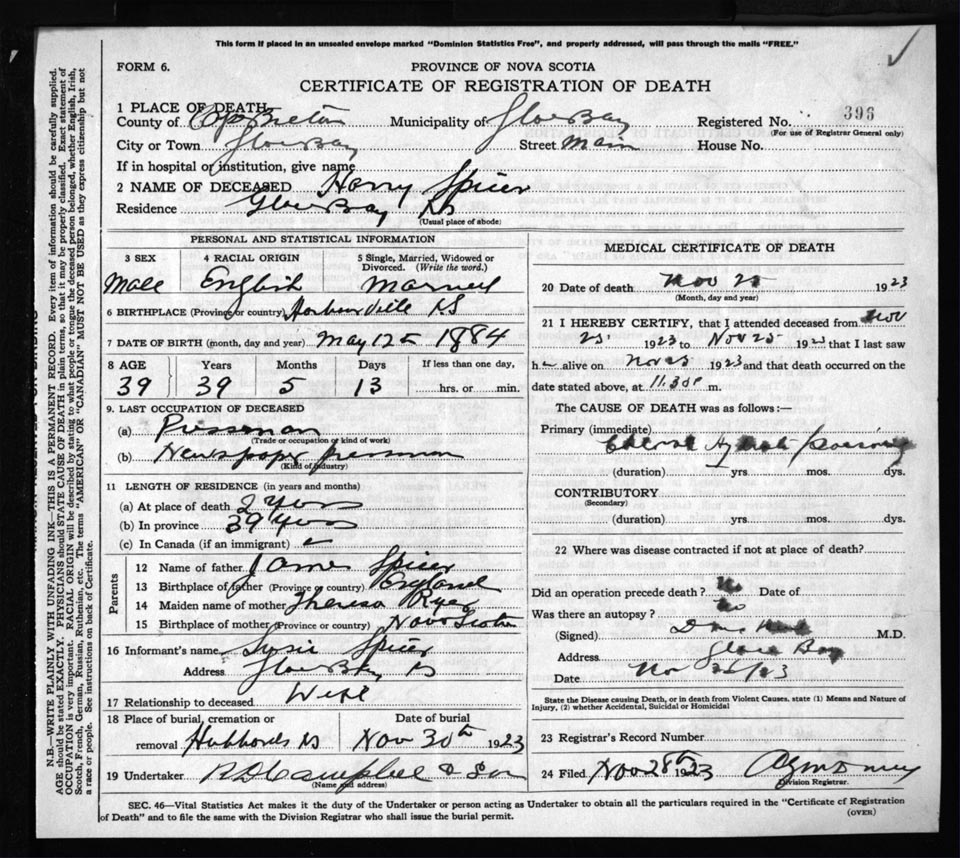 This form if placed in an unsealed envelope marked "Dominion Statistics Free", and properly addressed, will pass through the mails "FREE."
FORM 6.
PROVINCE OF NOVA SCOTIA
CERTIFICATE OF REGISTRATION OF DEATH
1 PLACE OF DEATH
County of Cape Breton Municipality of Glace Bay Registered No. 396
(For use of Registrar General only)
City or Town Glace Bay Street Main House No.
If in hospital or institution, give name
2 NAME OF DECEASED Harry Spicer
Residence Glace Bay NS
(Usual place of abode)
PERSONAL AND STATISTICAL INFORMATION
3 SEX 4 RACIAL ORIGIN 5 Single, Married, Widowed or Divorced. (Write the word.)
Male English Married
6 BIRTHPLACE (Province or country) Harbourville NS
7 DATE OF BIRTH (month, day and year) May 12th 1884
8 AGE Years Months Days If less than one day,
39 39 5 13 hrs. or min.
9. LAST OCCUPATION OF DECEASED
(a) Pressman
(Trade or occupation or kind of work)
(b) Newspaper pressman
(Kind of industry)
11 LENGTH OF RESIDENCE (in years and months)
(a) At place of death 2 years
(b) In province 39 years
(c) In Canada (if an immigrant)
Parents
12 Name of father James Spicer
13 Birthplace of father (Province or country) England
14 Maiden name of mother Theresa
15 Birthplace of mother (Province or country) Nova Scotia
16 Informant's name Susie Spicer
Address Glace Bay NS
17 Relationship to deceased Wife
18 Place of burial, cremation or Date of burial
removal Hubbards NS Nov 30th 1923
19 Undertaker Campbell & Son
(Name and address)
MEDICAL CERTIFICATE OF DEATH
20 Date of death Nov 1923
(Month, day and year)
21 I HEREBY CERTIFY, that I attended deceased from Nov
25 1923 to Nov 25 1923 that I last saw
h alive on 1923 and that death occurred on the
date stated above, at 11.30 m.
The CAUSE OF DEATH was as follows:—
Primary (immediate)
Chloral Hydrate poisoning
(duration) yrs. mos. dys.
CONTRIBUTORY
(Secondary)
(duration) yrs. mos. dys.
22 Where was disease contracted if not at place of death?
Did an operation precede death? No Date of
Was there an autopsy? No
(Signed) M.D.
Address Glace Bay
Date Nov /23
State the Disease causing Death, or in death from Violent Causes, state (1) Means and Nature of
Injury, (2) whether Accidental, Suicidal or Homicidal
23 Registrar's Record Number
24 Filed Nov 28th 1923
Division Registrar.
SEC. 46—Vital Statistics Act makes it the duty of the Undertaker or person acting as Undertaker to obtain all the particulars required in the "Certificate of Registration
of Death" and to file the same with the Division Registrar who shall issue the burial permit.
(OVER)
N.B.—WRITE PLAINLY WITH UNFADING INK—THIS IS A PERMANENT RECORD. Every item of information should be carefully supplied.
AGE should be stated EXACTLY. PHYSICIANS should STATE CAUSE OF DEATH in plain terms, so that it may be properly classified. Exact statement of
OCCUPATION is very important. RACIAL ORIGIN will be described by stating to what people or tongue the deceased person belonged, whether English, Irish,
Scotch, French, German, Russian, Ruthenian, etc. The terms "AMERICAN" or "CANADIAN" MUST NOT BE USED as they express citizenship but not
a race or people. See instructions on back of Certificate.